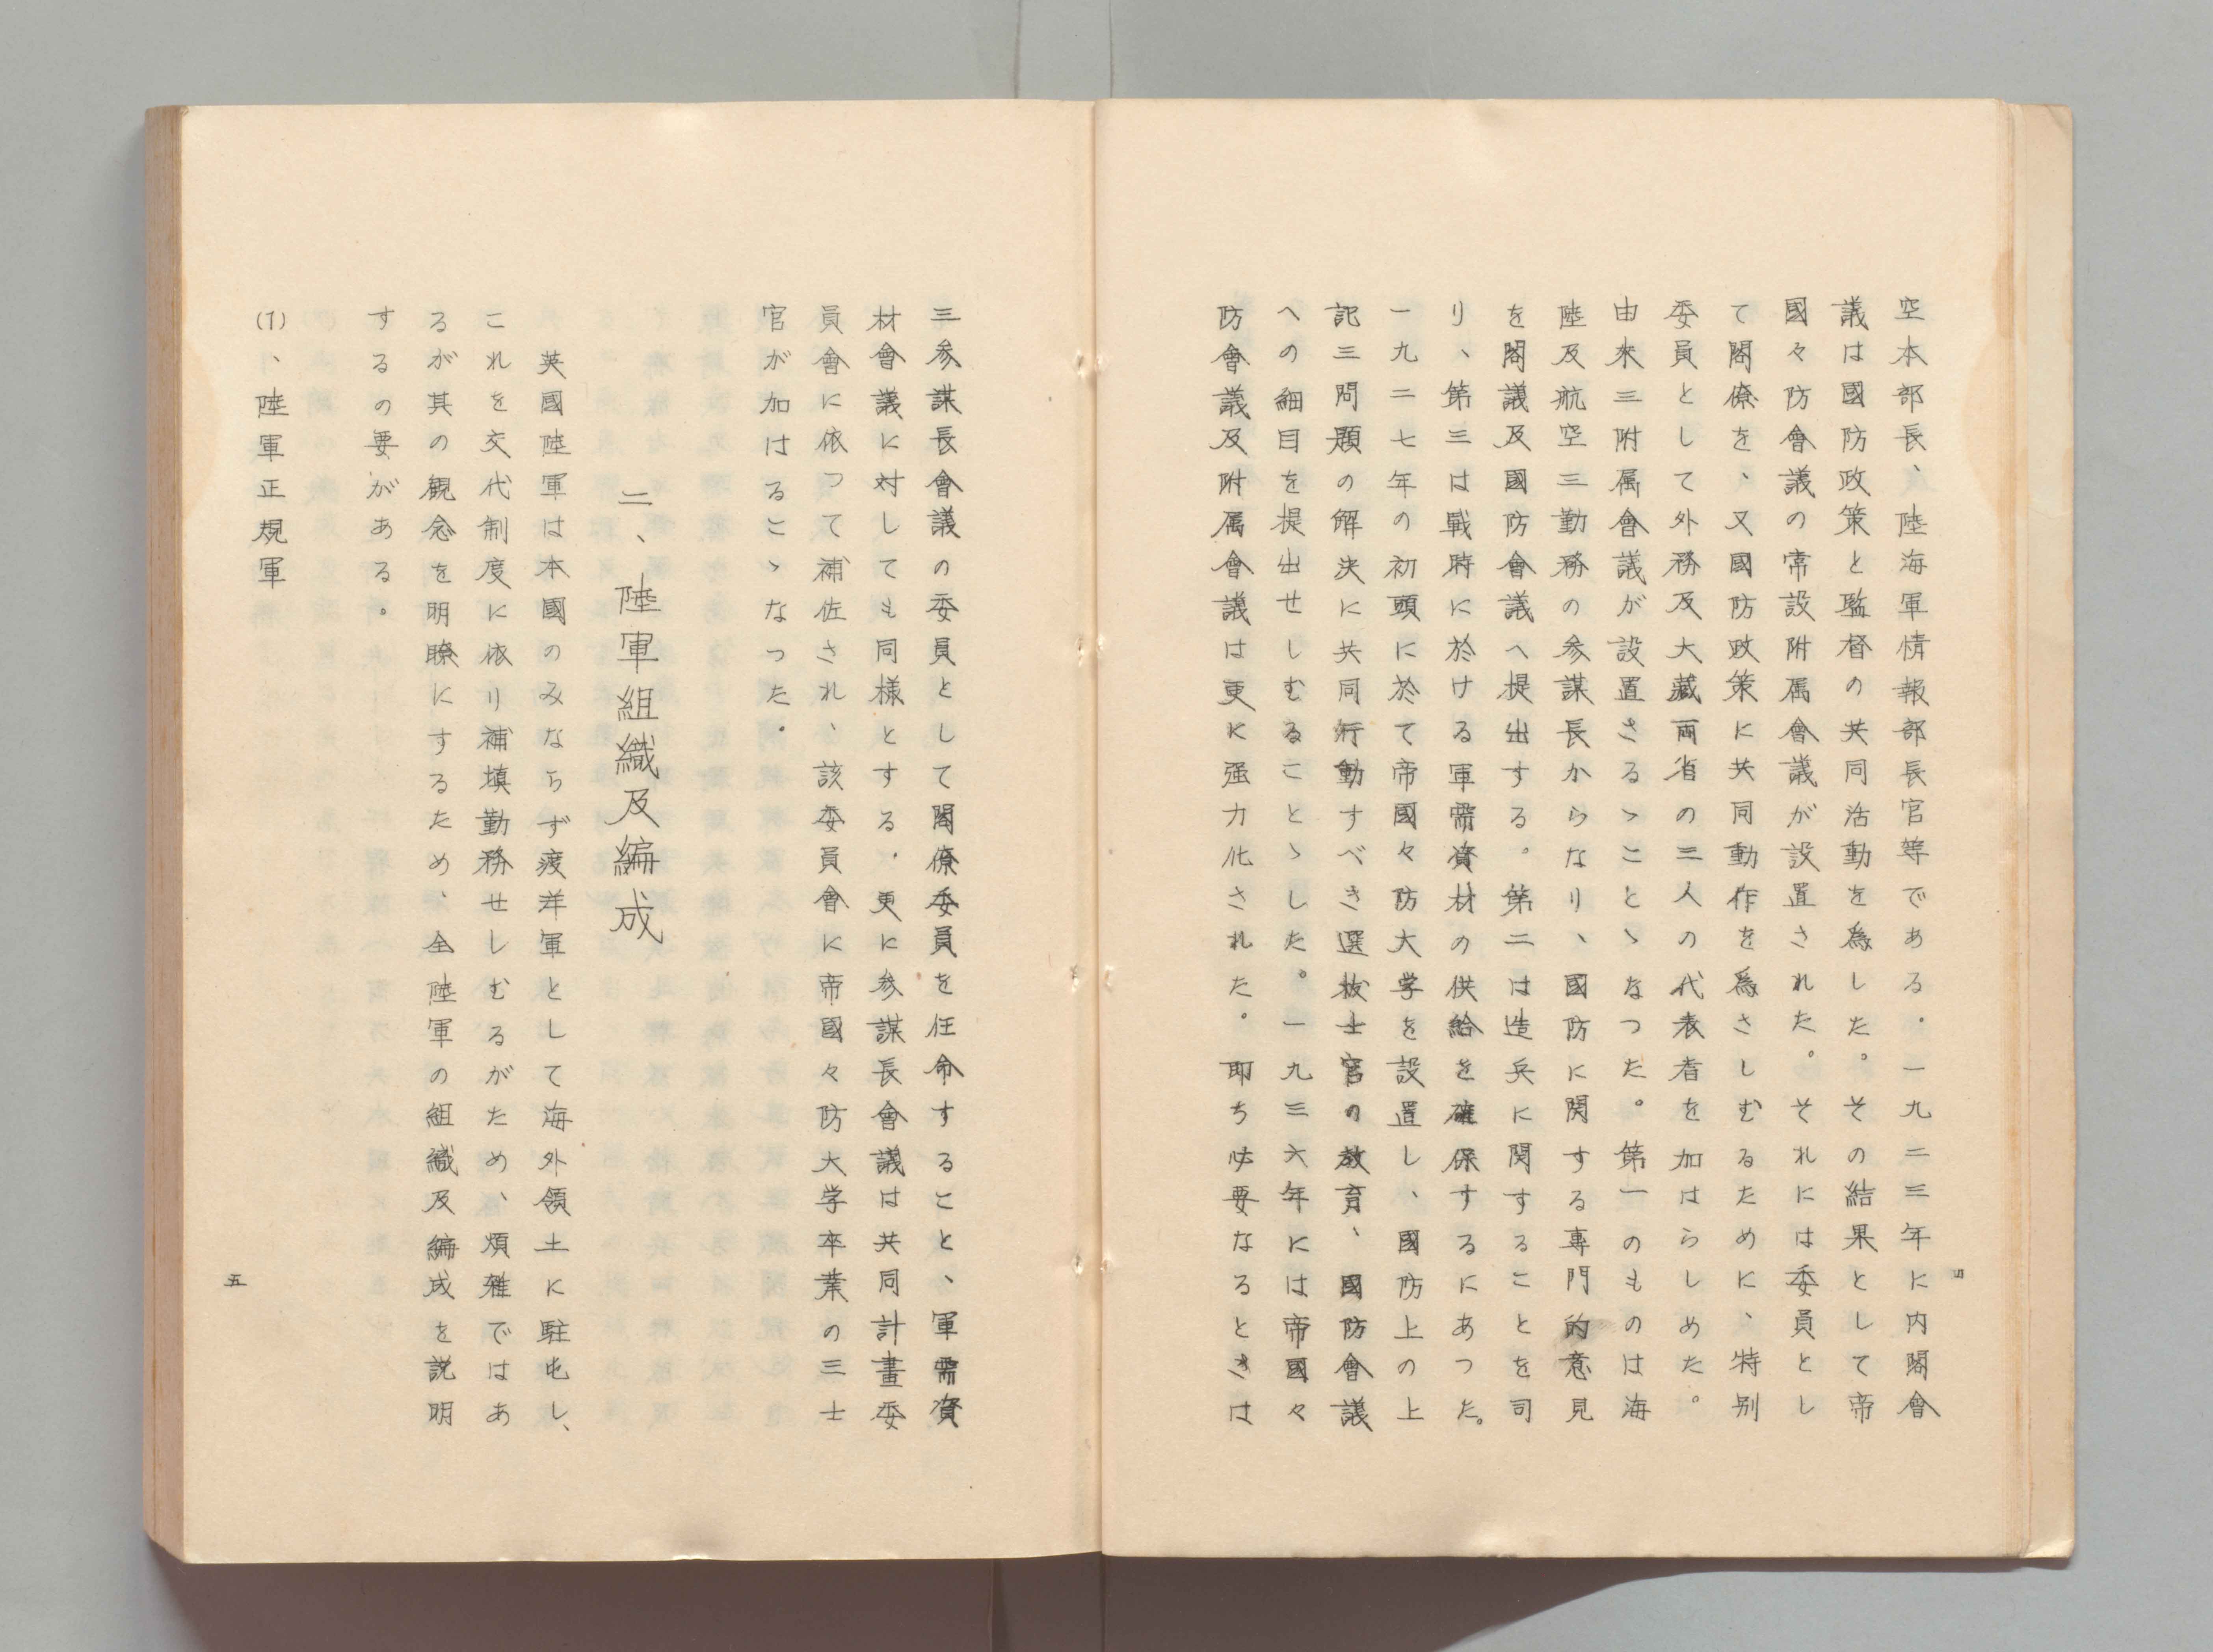 空本部長、陸海軍情報部長官等である．一九二三年に内閣會
議は國防政策と監督の共同活動を為した。その結果として帝
國々防會議の常設附属會議が設置された。それには委員とし
て閣僚を、又國防政策に共同動作を為さしむるために、特別
委員として外務及大藏両省の三人の代表者を加はらしめた。
由來三附属會議が設置さるゝことゝなつた。第一のものは海
陸及航空三勤務の参謀長からなり、國防に関する專門的意見
を閣議及國防會議へ提出する。第二は造兵に関することを司
り、第三は戰時に於ける軍需資材の供給を確保するにあつた。
一九二七年の初頭に於て帝國々防大学を設置し、國防上の上
記三問題の解決に共同行動すべき選拔士官の教育、國防會議
への細目を提出せしむることゝした。一九三六年には帝國々
防會議及附属會議は更に强力化された．即ち必要なるときは
四
三参謀長會議の委員として閣僚委員を任命すること、軍需資
材會議に対しても同様とする．更に参謀長會議は共同計畫委
員會に依つて補佐され、該委員會に帝國々防大学卒業の三士
官が加はることゝなつた．
二、陸軍組織及編成
英國陸軍は本國のみならず渡洋軍として海外領土に駐屯し、
これを交代制度に依り補填勤務せしむるがため、煩雜ではあ
るが其の観念を明瞭にするため、全陸軍の組織及編成を説明
するの要がある。
(1)、陸軍正規軍
五